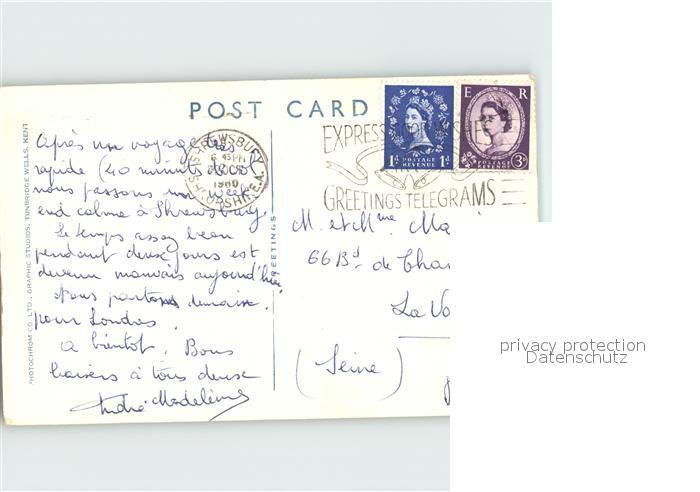 POST CARD
PHOTOCHROM CO. LTD., GRAPHIC STUDIOS, TUNBRIDGE WELLS, KENT
Après un voyage très
rapide (40 minutes de
nous passons un week
end calme à Shrewsbury.
Le temps assez beau
pendant deux jours est
devenu mauvais aujourd'hui.
Nous partons demain
pour Londres.
A bientôt. Bons
baisers à tous deux
André Madeleine
GREETINGS
SHREWSBURY
6 45 PM
OC
1960
SHROPSHIRE.A.
EXPRESS
GREETINGS TELEGRAMS
1D POSTAGE REVENUE 1D
E R
POSTAGE REVENUE 3D
M. et Mme Ma
66 Bd de Cha
La Va
(Seine)
privacy protection
Datenschutz